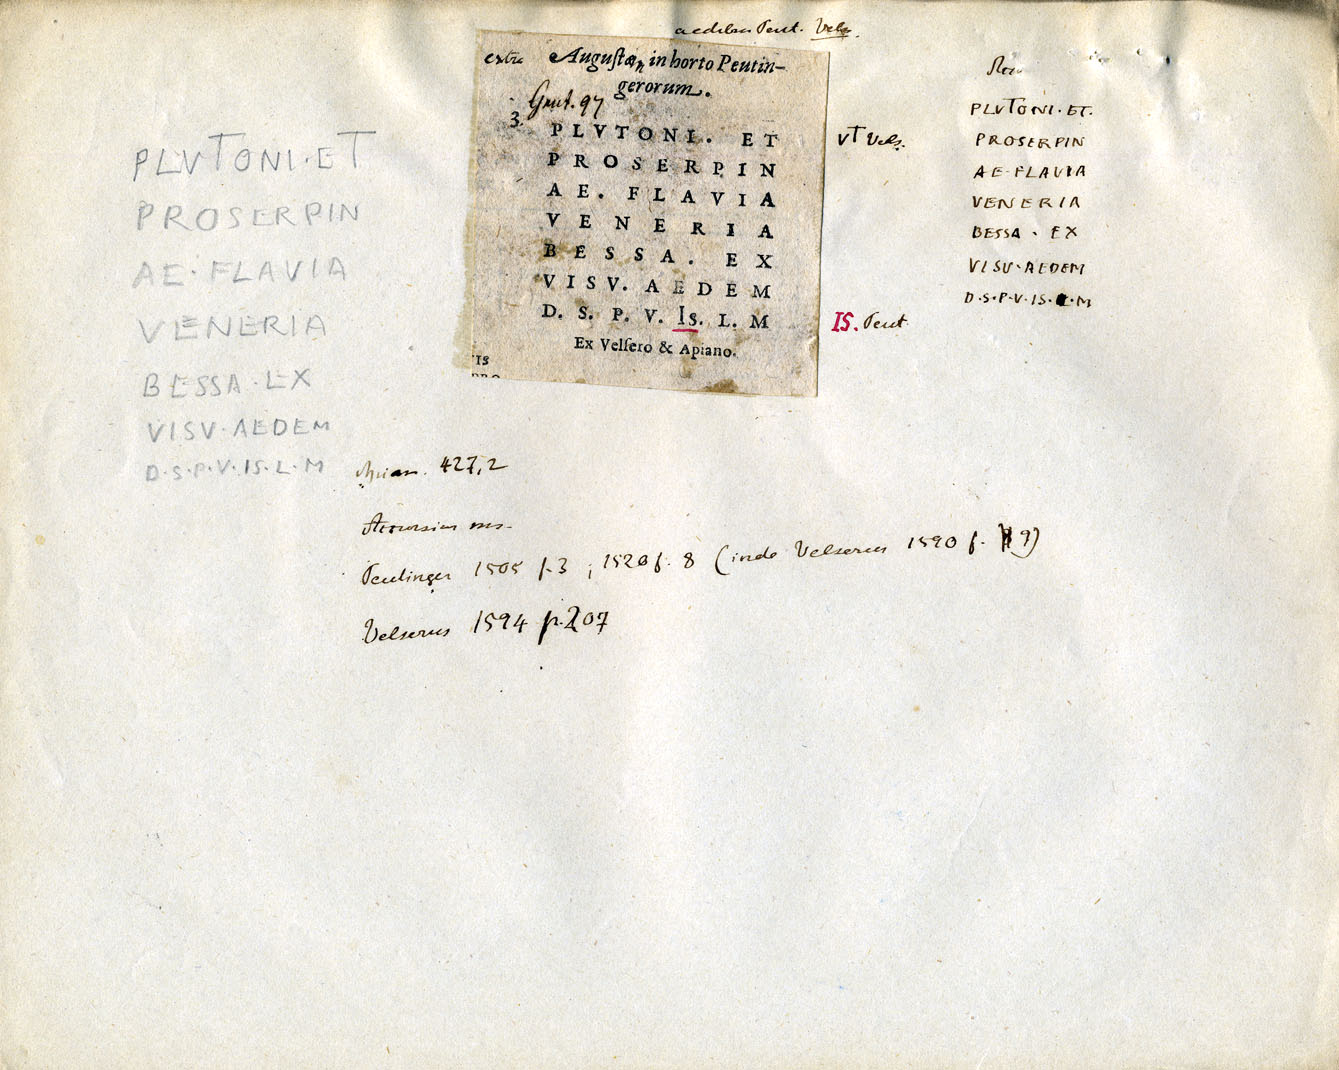 aedibus Peut. Vels.
extra Augustæ, in horto Peutin-
gerorum.
Grut. 97
3.
PLVTONI. ET
PROSERPIN
AE. FLAVIA
VENERIA
BESSA. EX
VISV. AEDEM
D. S. P. V. Is. L. M
Ex Velsero & Apiano.
IS
PRO
VT Vels.
IS. Peut
PLVTONI·ET
PROSERPIN
AE·FLAVIA
VENERIA
BESSA·EX
VISV·AEDEM
D·S·P·V·IS·L·M
PLVTONI·ET.
PROSERPIN
AE·FLAVIA
VENERIA
BESSA · EX
VISV·AEDEM
D·S·P·V·IS·L·M
Apian. 427,2
Accursius ms.
Peutinger 1505 f. 3 ; 1520 f. 8 (inde Velserus 1590 f. 9)
Velserus 1594 p. 207